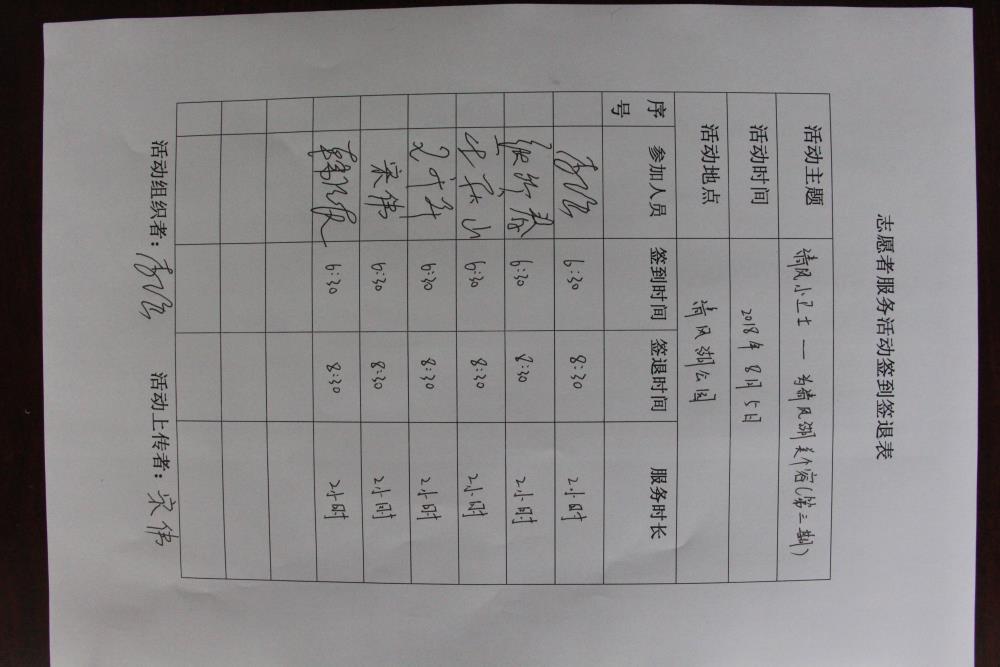 志愿者服务活动签到签退表
活动主题 清风小卫士——为清风湖美个容(第三期)
活动时间 2018年8月5日
活动地点 清风湖公园
序号 参加人员 签到时间 签退时间 服务时长
6:30 8:30 2小时
6:30 8:30 2小时
6:30 8:30 2小时
6:30 8:30 2小时
宋伟 6:30 8:30 2小时
6:30 8:30 2小时
活动组织者: 活动上传者:宋伟